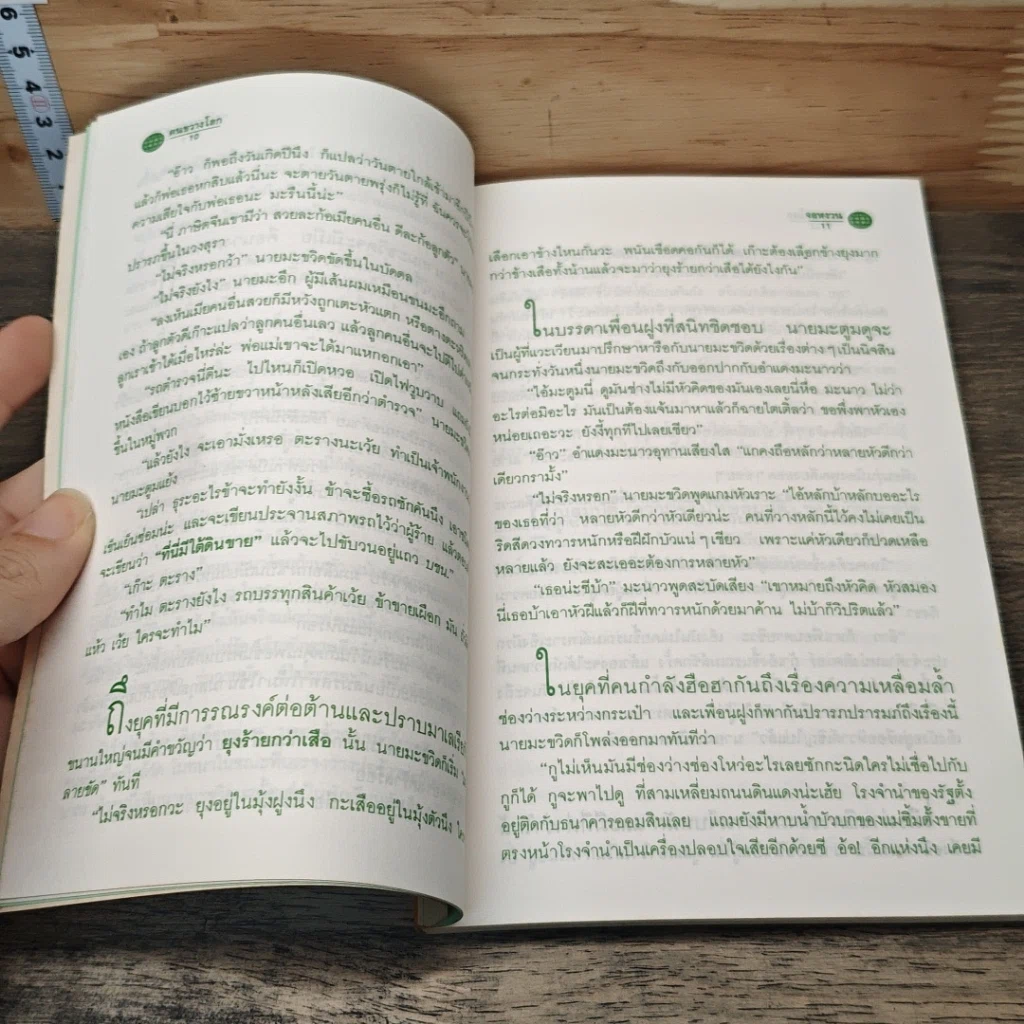 6
5
4
3
2
คนขวางโลก
10
"อ้าว ก็พอถึงวันเกิดปีนึง ก็แปลว่าวันตายใกล้เข้ามา
แล้วก็พ่อเธอหกสิบแล้วนี่นะ จะตายวันตายพรุ่งก็ไม่รู้ที่ ฉันควรจะ
ความเสียใจกับพ่อเธอนะ มะรืนนี้น่ะ"
"นี่ ภาษิตจีนเขามีว่า สวยละก้อเมียคนอื่น ดีละก้อลูกตัว"
ปรารภขึ้นในวงสุรา
"ไม่จริงหรอกว้า" นายมะขวิดขัดขึ้นในบัดดล
"ไม่จริงยังไง" นายมะอึก ผู้มีเส้นผมเหมือนขนมะอึกถาม
"ลงเห็นเมียคนอื่นสวยก็มีหวังถูกเตะหัวแตก หรือตา
เอง ถ้าลูกตัวดีเก๊าะแปลว่าลูกคนอื่นเลว แล้วลูกคนอื่นจะไปดี
ลูกเราเข้าได้เมื่อไหร่ล่ะ พ่อแม่เขาจะได้มาแหกอกเอา"
"รถตำรวจนี่ดีนะ ไปไหนก็เปิดหวอ เปิดไฟวูบวาบ
หนังสือเขียนบอกไว้ซ้ายขวาหน้าหลังเสียอีกว่าตำรวจ"
ขึ้นในหมู่พวก
"แล้วยังไง จะเอามั่งเหรอ ตะรางนะเว้ย ทำเป็นเจ้าพนักงาน
นายมะตูมแย้ง
"เปล่า ธุระอะไรข้าจะทำยังงั้น ข้าจะซื้อรถซักคันนึง
เซ็นเย็นซ่อมน่ะ และจะเขียนประจานสภาพรถไว้ว่าผู้ร้าย แล้ว
จะเขียนว่า "ที่นี่มีใต้ดินขาย" แล้วจะไปขับวนอยู่แถว บชน."
"เก๊าะ ตะราง"
"ทำไม ตะรางยังไง รถบรรทุกสินค้าเว้ย ข้าขายเผือก มัน
แห้ว เว้ย ใครจะทำไม"
ถึงยุคที่มีการรณรงค์ต่อต้านและปราบมาเลเรีย
ขนานใหญ่จนมีคำขวัญว่า ยุงร้ายกว่าเสือ นั้น นายมะขวิดก็เริ่ม
ลายขัด" ทันที
"ไม่จริงหรอกวะ ยุงอยู่ในมุ้งฝูงนึง กะเสืออยู่ในมุ้งตัวนึง
จอหงวน
11
เลือกเอาข้างไหนกันวะ พนันเชือดคอกันก็ได้ เก๊าะต้องเลือกข้างยุงมาก
กว่าข้างเสือทั้งน้านแล้วจะมาว่ายุงร้ายกว่าเสือได้ยังไงกัน"
ในบรรดาเพื่อนฝูงที่สนิทชิดชอบ นายมะตูมดูจะ
เป็นผู้ที่แวะเวียนมาปรึกษาหารือกับนายมะขวิดด้วยเรื่องต่าง ๆ เป็นนิจสิน
จนกระทั่งวันหนึ่งนายมะขวิดถึงกับออกปากกับอำแดงมะนาวว่า
"ไอ้มะตูมนี่ ดูมันช่างไม่มีหัวคิดของมันเองเลยนี่หือ มะนาว ไม่ว่า
อะไรต่อมิอะไร มันเป็นต้องแจ้นมาหาแล้วก็ฉายไตเติ้ลว่า ขอพึ่งพาหัวเอง
หน่อยเถอะวะ ยังงี้ทุกทีไปเลยเชียว"
"อ๊าว" อำแดงมะนาวอุทานเสียงใส "แกคงถือหลักว่าหลายหัวดีกว่า
เดียวกรามั้ง"
"ไม่จริงหรอก" นายมะขวิดพูดแกมหัวเราะ "ไอ้หลักบ้าหลักบออะไร
ของเธอที่ว่า หลายหัวดีกว่าหัวเดียวน่ะ คนที่วางหลักนี้ไว้คงไม่เคยเป็น
ริดสีดวงทวารหนักหรือฝีฝักบัวแน่ ๆ เชียว เพราะแค่หัวเดียวก็ปวดเหลือ
หลายแล้ว ยังจะสะเออะต้องการหลายหัว"
"เธอน่ะซีบ้า" มะนาวพูดสะบัดเสียง "เขาหมายถึงหัวคิด หัวสมอง
นี่เธอบ้าเอาหัวฝีแล้วก็ฝีที่ทวารหนักด้วยมาค้าน ไม่บ้าก็วิปริตแล้ว"
ในยุคที่คนกำลังฮือฮากันถึงเรื่องความเหลื่อมล้ำ
ช่องว่างระหว่างกระเป๋า และเพื่อนฝูงก็พากันปรารภปรารมภ์ถึงเรื่องนี้
นายมะขวิดก็โพล่งออกมาทันทีว่า
"กูไม่เห็นมันมีช่องว่างช่องโหว่อะไรเลยซักกะนิดใครไม่เชื่อไปกับ
กูก็ได้ กูจะพาไปดู ที่สามเหลี่ยมถนนดินแดงน่ะเฮ้ย โรงจำนำของรัฐตั้ง
อยู่ติดกับธนาคารออมสินเลย แถมยังมีหาบน้ำบัวบกของแม่ซิ้มตั้งขายที่
ตรงหน้าโรงจำนำเป็นเครื่องปลอบใจเสียอีกด้วยซี อ้อ! อีกแห่งนึง เคยมี